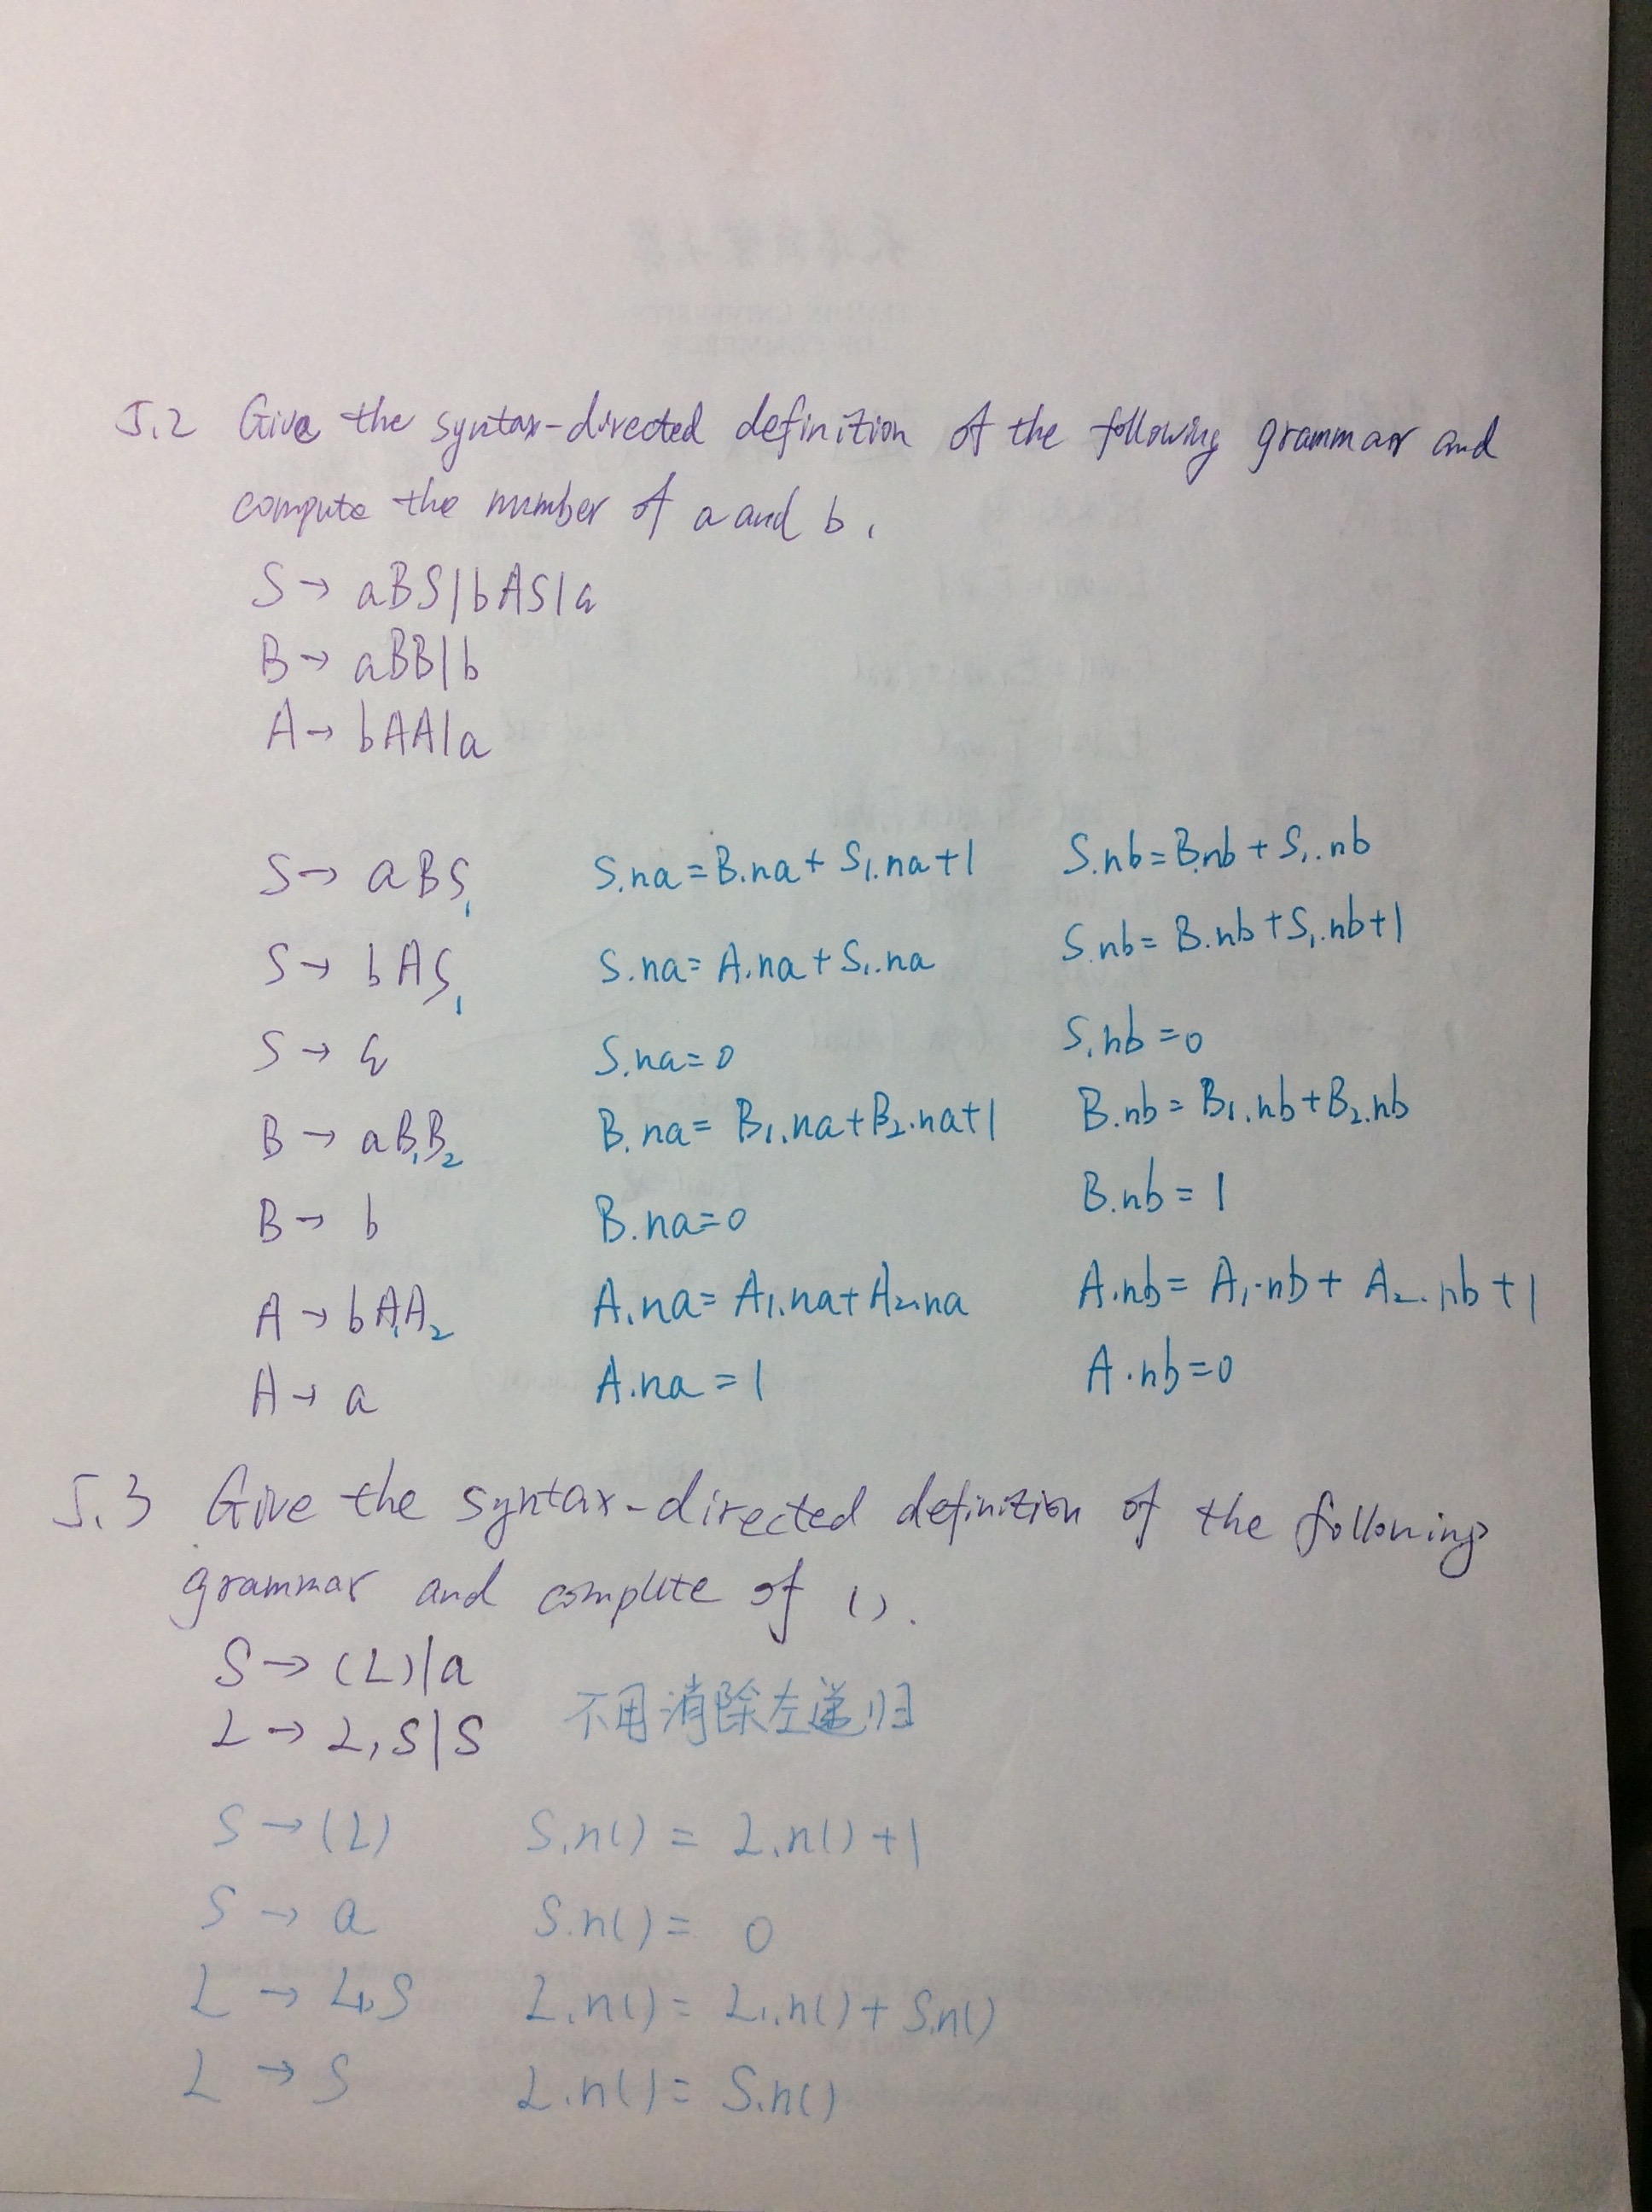 5.2 Give the syntax-directed definition of the following grammar and
compute the number of a and b.
S → aBS|bAS|ε
B → aBB|b
A → bAA|a
S → aBS₁ S.na=B.na+S₁.na+1 S.nb=B.nb+S₁.nb
S → bAS₁ S.na=A.na+S₁.na S.nb=B.nb+S₁.nb+1
S → ε S.na=0 S.nb=0
B → aB₁B₂ B.na=B₁.na+B₂.na+1 B.nb=B₁.nb+B₂.nb
B → b B.na=0 B.nb=1
A → bA₁A₂ A.na=A₁.na+A₂.na A.nb=A₁.nb+A₂.nb+1
A → a A.na=1 A.nb=0
5.3 Give the syntax-directed definition of the following
grammar and complete of ().
S → (L)|a
L → L,S|S 不用消除左递归
S → (L) S.n()=L.n()+1
S → a S.n()=0
L → L₁,S L.n()=L₁.n()+S.n()
L → S L.n()=S.n()